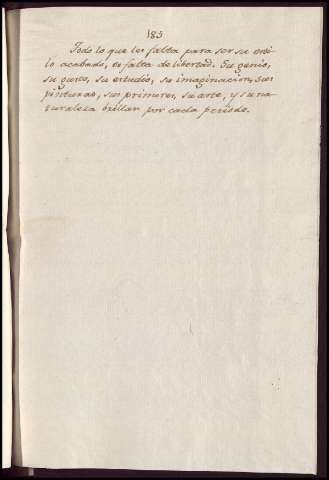 185
Todo lo que les falta para ser su esti-
lo acabado, es falta de libertad. Su genio,
su gusto, su estudio, su imaginacion, sus
pinturas, sus primores, su arte, y su na-
turaleza brillan por cada periodo.